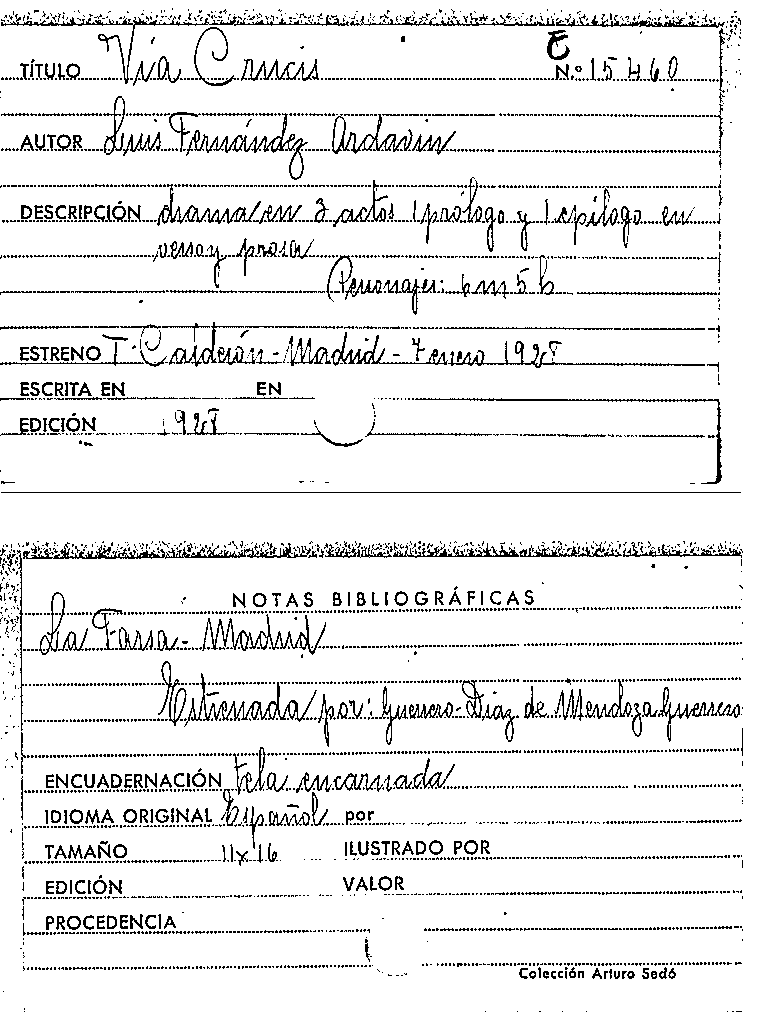 TÍTULO Vía Crucis E N.º 15460
AUTOR Luis Fernández Ardavin
DESCRIPCIÓN drama en 3 actos 1 prólogo y 1 epílogo en
verso y prosa
Personajes: 6 m 5 h
ESTRENO T. Calderón - Madrid - 7 enero 1928
ESCRITA EN EN
EDICIÓN 1928
NOTAS BIBLIOGRÁFICAS
La Farsa - Madrid
Estrenada por: Guerrero-Diaz de Mendoza Guerrero
ENCUADERNACIÓN tela encarnada
IDIOMA ORIGINAL Español por
TAMAÑO 11x16 ILUSTRADO POR
EDICIÓN VALOR
PROCEDENCIA
Colección Arturo Sedó